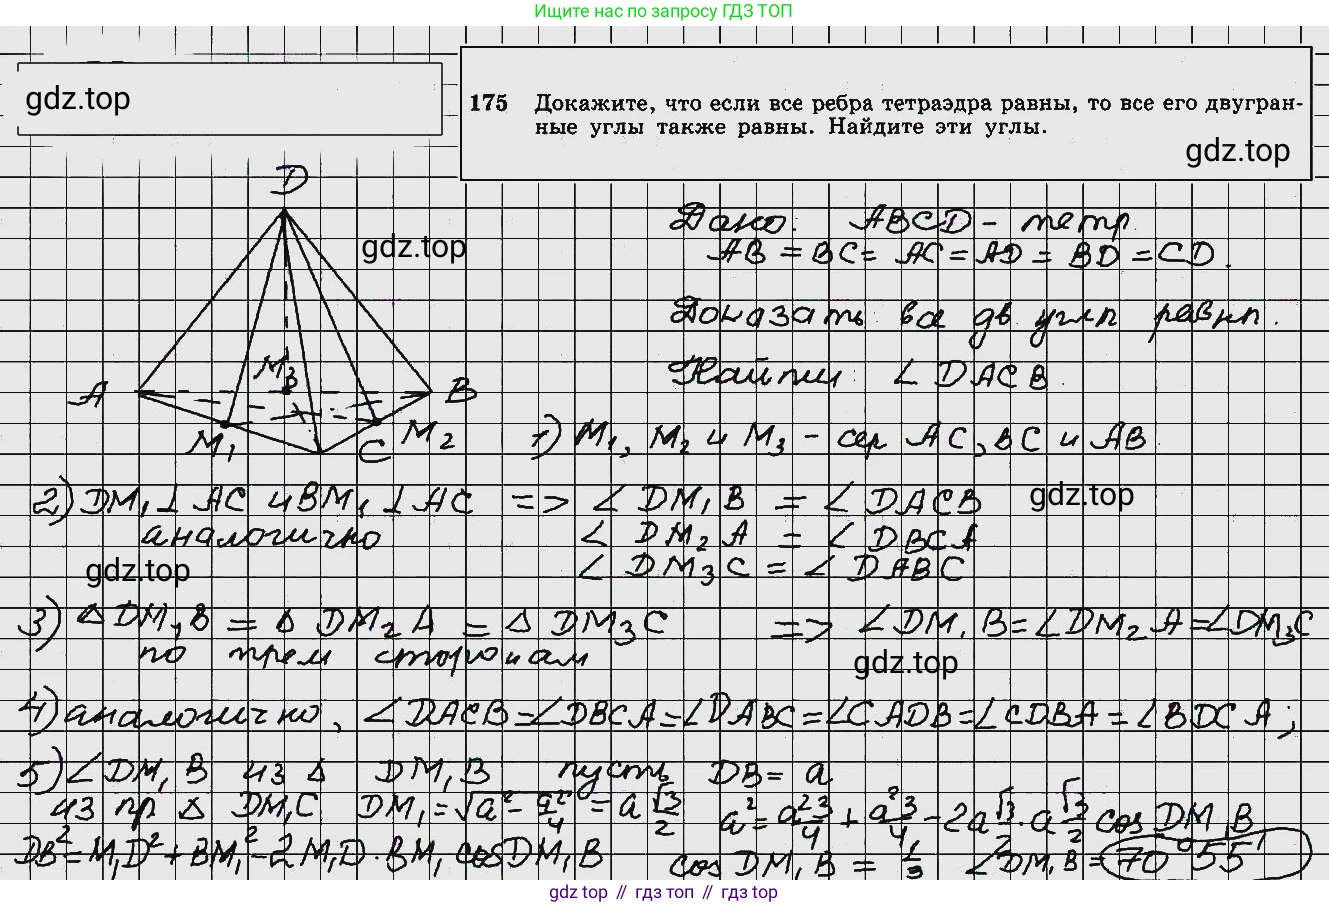 Ищите нас по запросу ГДЗ ТОП
gdz.top
175 Докажите, что если все ребра тетраэдра равны, то все его двугран-
ные углы также равны. Найдите эти углы.
gdz.top
D
gdz.top
M₃
A
B
M₁
C
M₂
Дано: ABCD - тетр.
AB = BC = AC = AD = BD = CD.
Доказать: все дв углы равны.
Найти ∠DACB
1) M₁, M₂ и M₃ - сер AC, BC и AB
2) DM₁ ⊥ AC и BM₁ ⊥ AC => ∠DM₁B = ∠DACB
gdz.top
аналогично ∠DM₂A = ∠DBCA
gdz.top
∠DM₃C = ∠DABC
3) △DM₁B = △DM₂A = △DM₃C => ∠DM₁B = ∠DM₂A = ∠DM₃C
по трем сторонам
gdz.top
4) аналогично, ∠DACB = ∠DBCA = ∠DABC = ∠CADB = ∠CDBA = ∠BDCA;
5) ∠DM₁B из △ DM₁B пусть DB = a
из пр △ DM₁C DM₁ = √(a² - a²/4) = a √3/2
a² = a²3/4 + a²3/4 - 2a √3/2 · a √3/2 cos DM₁B
DB² = M₁D² + BM₁² - 2M₁D · BM₁ cos DM₁B
cos DM₁B = 1/3 ∠DM₁B = 70°55'
gdz top // гдз топ // gdz top